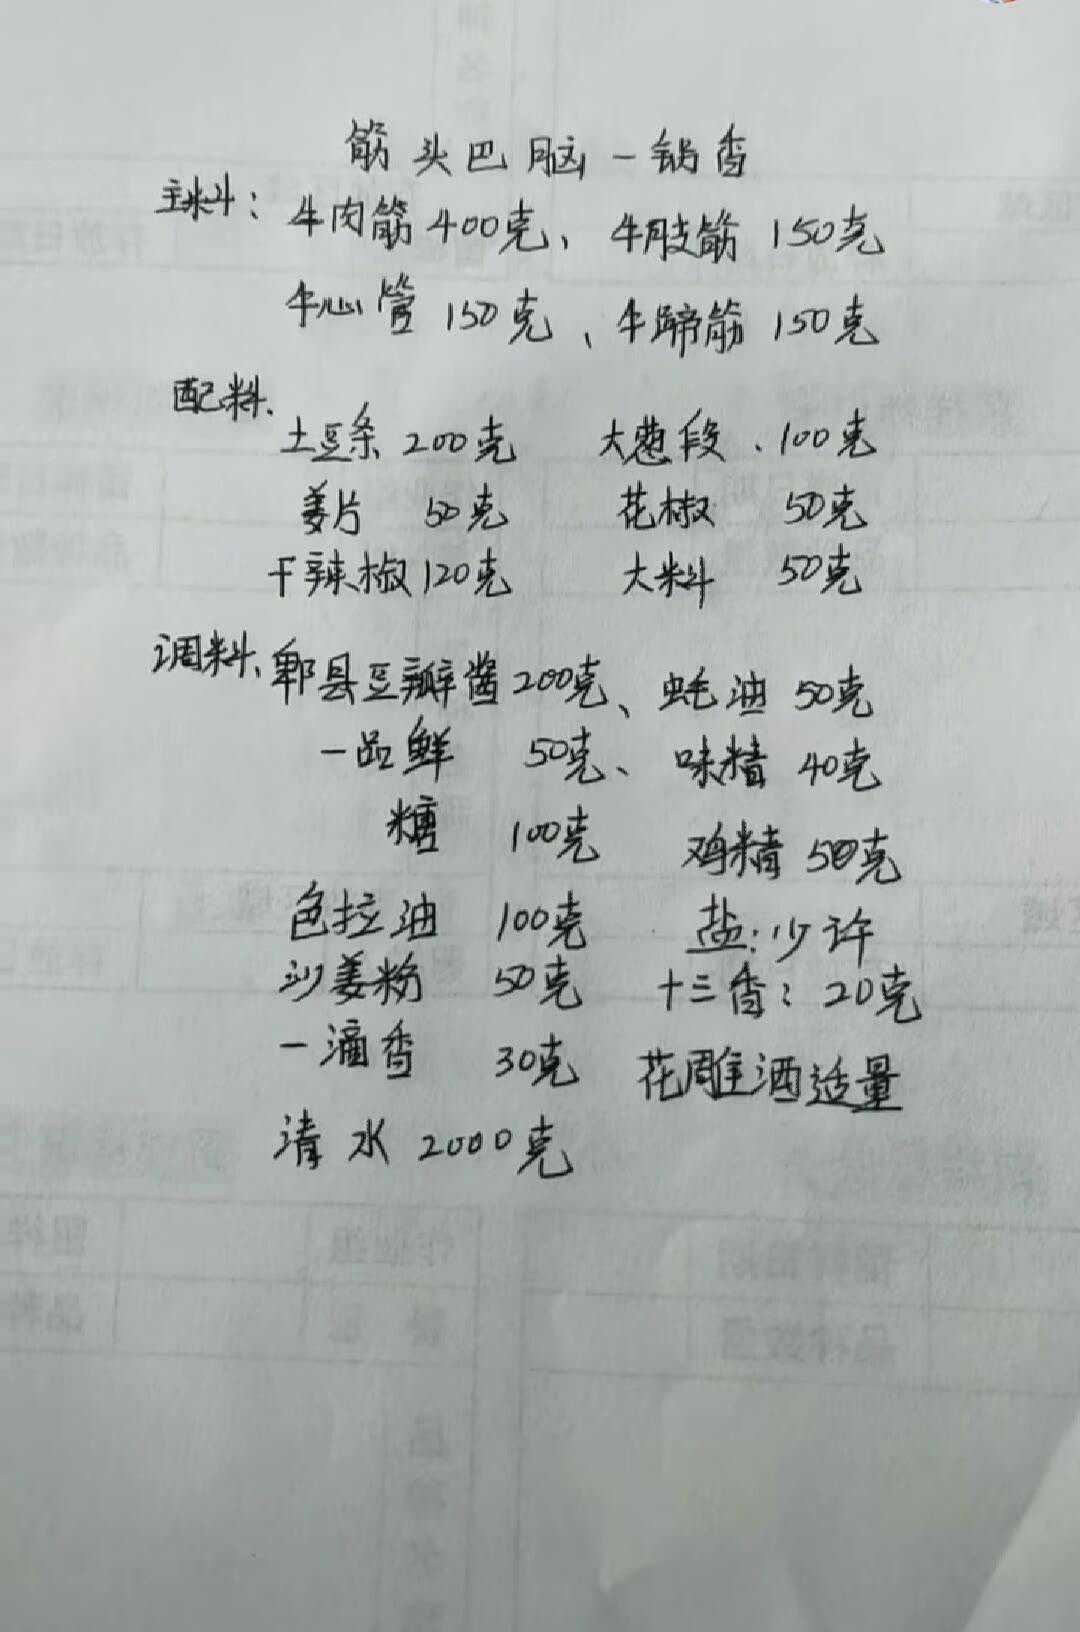 筋头巴脑一锅香
主料：牛肉筋400克、牛肢筋150克
牛心管150克、牛蹄筋150克
配料、
土豆条200克 大葱段、100克
姜片 50克 花椒 50克
干辣椒120克 大料 50克
调料、郫县豆瓣酱200克、蚝油50克
一品鲜 50克、味精40克
糖 100克 鸡精50克
色拉油 100克 盐：少许
沙姜粉 50克 十三香：20克
一滴香 30克 花雕酒适量
清水2000克